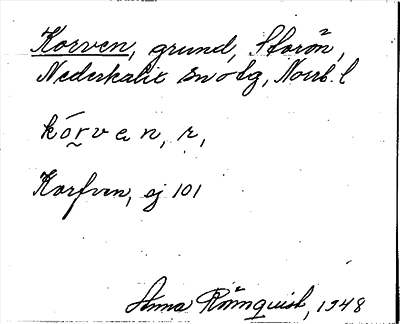 Korven, grund, Storön,
Nederkalix sn o tg, Norrb. l
kórvan, r,
Korfven, ej 101
Anna Rönnquist, 1948